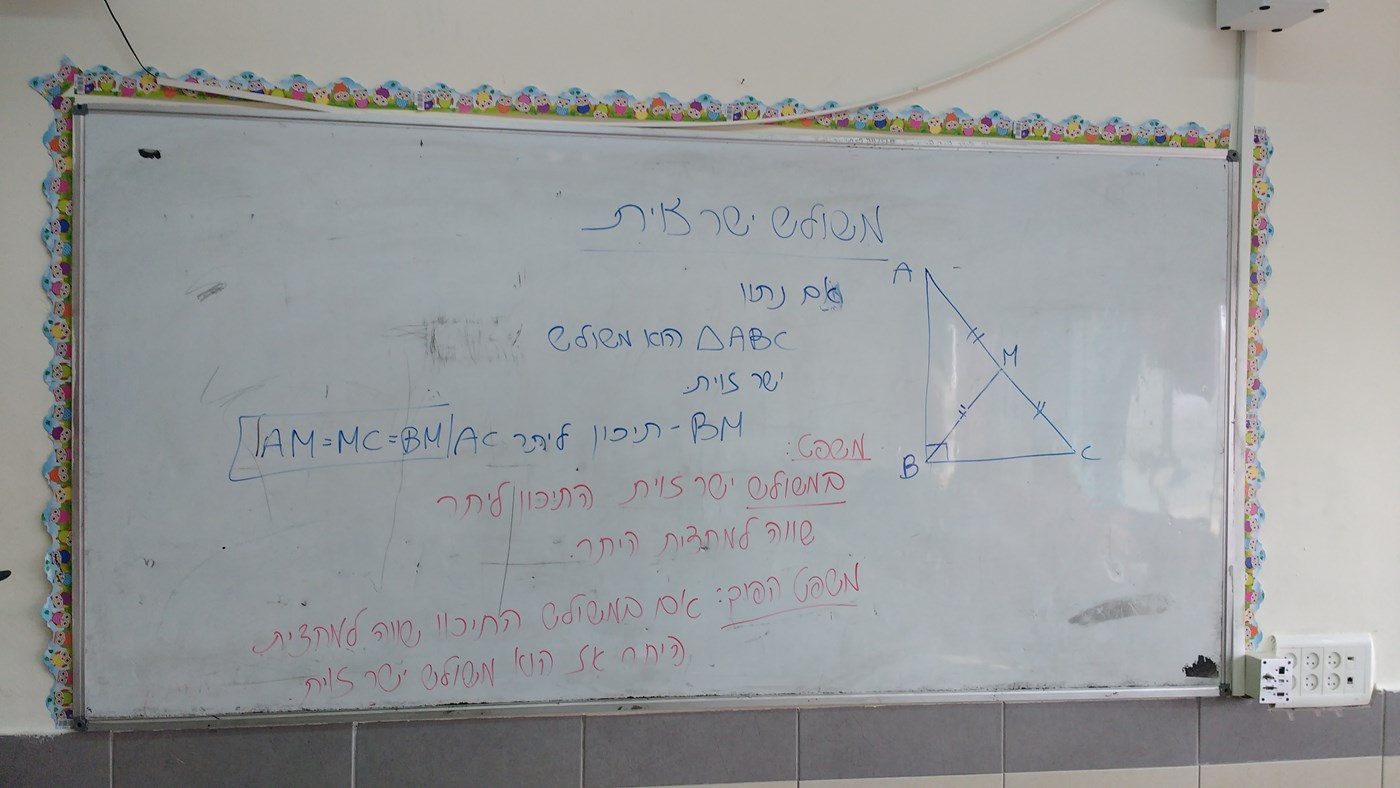 משולש ישר זוית
אם נתון
ΔABC הוא משולש
ישר זוית.
BM - תיכון ליתר AC |AM=MC=BM
משפט:
במשולש ישר זוית התיכון ליתר
שווה למחצית היתר.
משפט הפוך: אם במשולש התיכון שווה למחצית
היתר אז הוא משולש ישר זוית
A
M
B
C